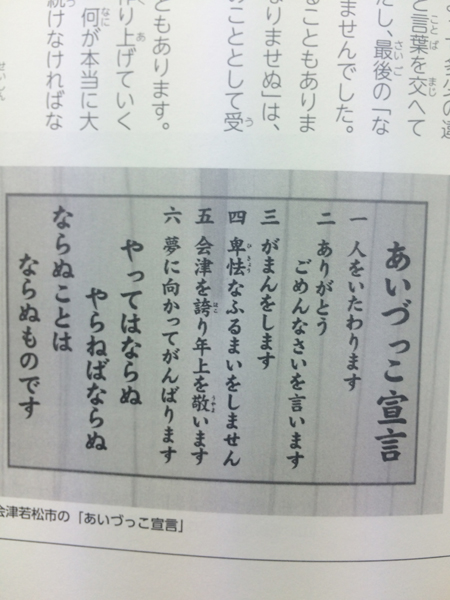 と言葉を交へて
だし、最後の「な
ませんでした。
ることもありま
なりませぬ」は、
のこととして受
ともあります。
作り上げていく
何が本当に大
続けなければな
あいづっこ宣言
一 人をいたわります
二 ありがとう
ごめんなさいを言います
三 がまんをします
四 卑怯なふるまいをしません
五 会津を誇り年上を敬います
六 夢に向かってがんばります
やってはならぬ
やらねばならぬ
ならぬことは
ならぬものです
会津若松市の「あいづっこ宣言」